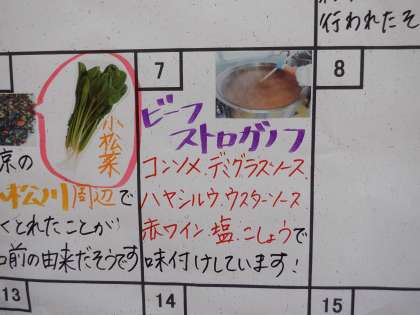 行われたそ
7
8
小松菜
京の
小松川周辺で
くとれたことが
名前の由来だそうです
ビーフ
ストロガノフ
コンソメ、デミグラスソース、
ハヤシルウ、ウスターソース
赤ワイン、塩、こしょうで
味付けしています!
13
14
15